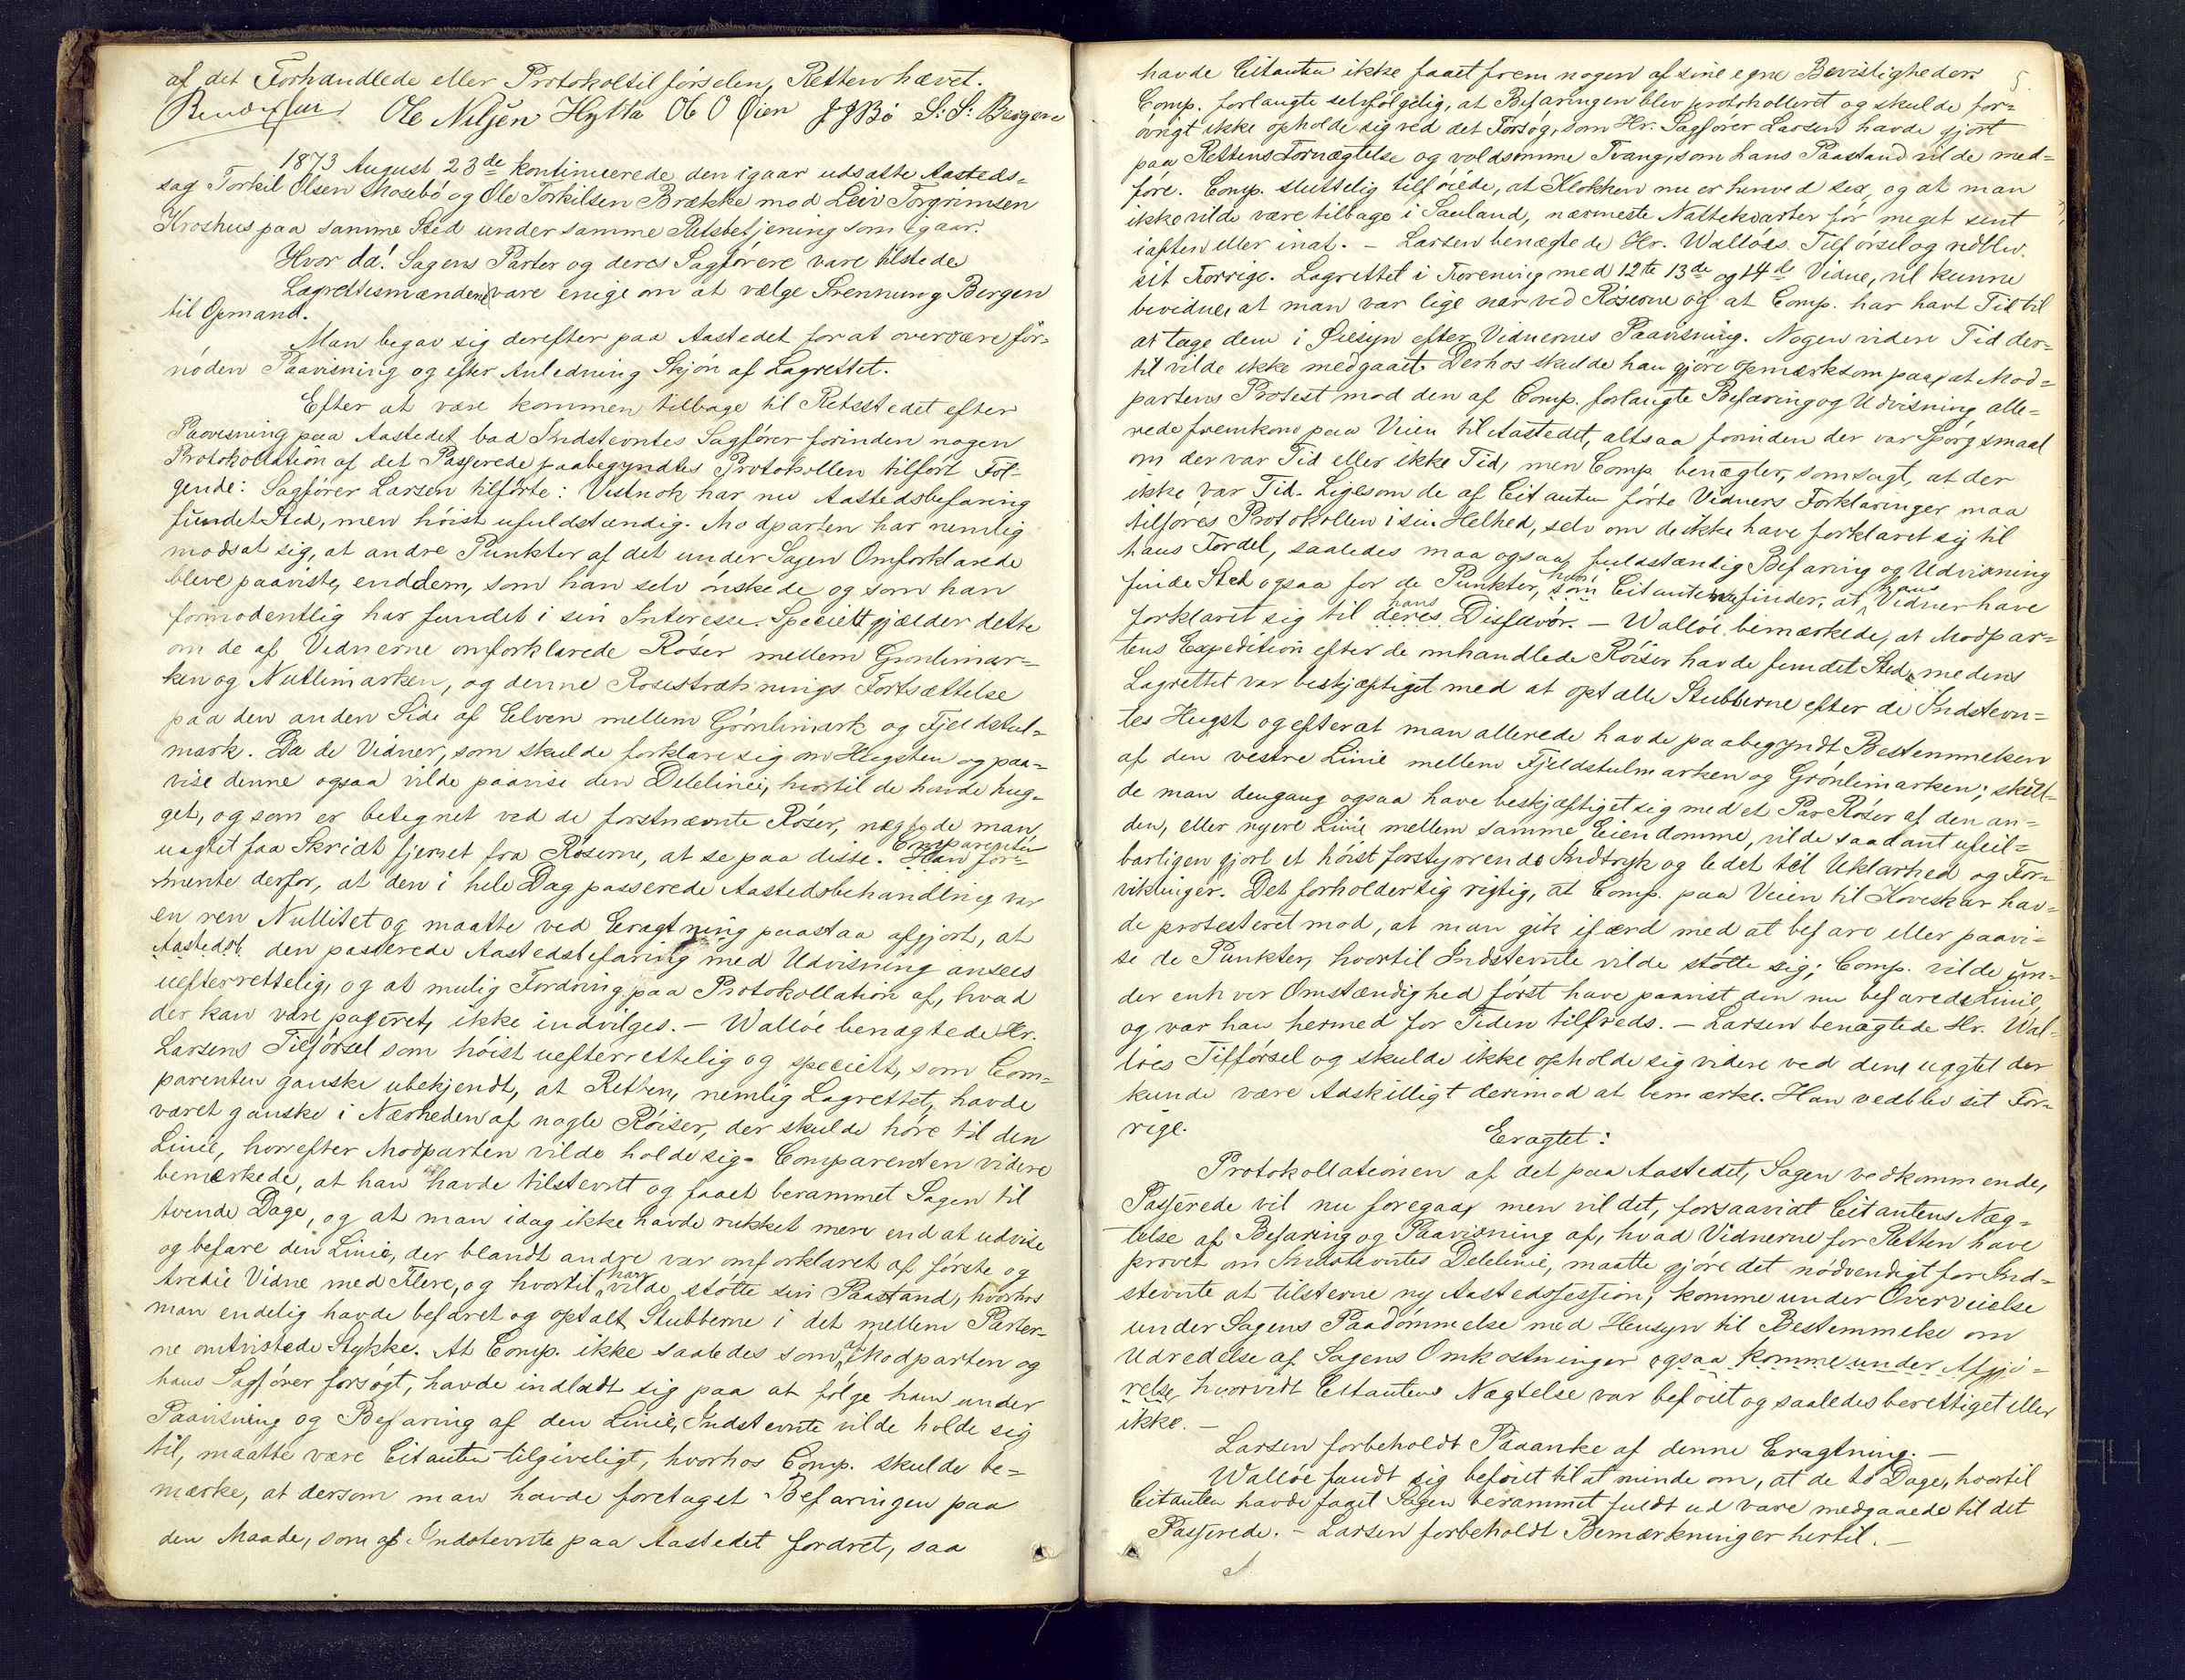 af det Forhandlede eller Protokoltilførselen, Retten hævet.
Ole Nilsen Hytta Ob O Øien J J Bø S. S. Bergen
1873 August 23de kontinuerede den igaar udsatte Aasteds-
sag Torkil Olsen Mosebø og Ole Torkilsen Brække mod Leiv Torgrimsen
Kroshus paa samme Sted under samme Retsbetjening som igaar.
Hvor da! Sagens Parter og deres Sagførere vare tilstede
Lagrettesmændene vare enige om at vælge Svennung Bergen
til Opmand.
Man begav sig derefter paa Aastedet for at overvære for-
nøden Paavisning og efter Anledning Skjøn af Lagrettet.
Efter at være kommen tilbage til Retsstedet efter
Paavisning paa Aastedet bad Indstevntes Sagfører forinden nogen
Protokollation af det Passerede paabegyndtes Protokollen tilført Føl-
gende: Sagfører Larsen tilførte: Vistnok har nu Aastedsbefaring
fundet Sted, men høist ufuldstændig. Modparten har nemlig
modsat sig, at andre Punkter af det under Sagen Omforklarede
bleve paaviste, end dem, som han selv ønskede og som han
formodentlig har fundet i sin Interesse. Specielt gjælder dette
om de af Vidnerne omforklarede Røser mellem Grønlimar-
ken og Nutlimarken, og denne Rosestræknings Fortsættelse
paa den anden Side af Elven mellem Grønlimark og Fjeldstul-
mark. Da de Vidner, som skulde forklare sig om Hugsten og paa-
vise denne ogsaa vilde paavise den Delelinie, hvortil de havde hug-
get, og som er betegnet ved de forstnævnte Røser, nægtede man,
uagtet faa Skridt fjernet fra Røserne, at se paa disse. Han Comparenten for-
mente derfor, at den i hele Dag passerede Aastedsbehandling var
en ren Nullitet og maatte ved Eragtning paastaa afgjort, at
Aastedet den passerede Aastedsbefaring med Udvisning ansees
uefterrettelig, og at mulig Fordring paa Protokollation af, hvad
der kan være passeret, ikke indvilges. – Walløe benægtede Hr.
Larsens Tilførsel som høist uefterrettelig og specielt, som Com-
parenten ganske ubekjendt, at Retten, nemlig Lagrettet, havde
været ganske i Nærheden af nogle Røiser, der skulde høre til den
Linie, hvorefter Modparten vilde holde sig. Comparenten videre
bemærkede, at han havde tilstevnt og faaet berammet Sagen til
tvende Dage, og at man idag ikke havde rukket mere end at udvise
og befare den Linie, der blandt andre var omforklaret af første og
tredie Vidne med Flere, og hvortil han vilde støtte sin Paastand, hvorhos
man endelig havde befaret og optalt Stubberne i det mellem Parter-
ne omtvistede Stykke. At Comp. ikke saaledes som af Modparten og
hans Sagfører forsøgt, havde indladt sig paa at følge ham under
Paavisning og Befaring af den Linie, Indstevnte vilde holde sig
til, maatte være Citanten tilgiveligt, hvorhos Comp. skulde be-
mærke, at dersom man havde foretaget Befaringen paa
den Maade, som af Indstevnte paa Aastedet fordret, saa
5.
havde Citanten ikke faaet frem nogen af sine egne Bevisligheder.
Comp. forlangte selvfølgelig, at Befaringen blev protokolleret og skulde for-
øvrigt ikke opholde sig ved det Forsøg, som Hr. Sagfører Larsen havde gjort
paa Rettens Fornægtelse og voldsomme Tvang, som hans Paastand vilde med-
føre. Comp. sluttelig tilføiede, at Klokken nu er henved sex, og at man
ikke vilde være tilbage i Sauland, nærmeste Nattekvarter før meget sent
iaften eller inat. – Larsen benægtede Hr. Walløes Tilførsel og vedblev
sit Forrige. Lagrettet i Forening med 12te 13de og 14de Vidne, vil kunne
bevidne, at man var lige nær ved Røserne og at Comp. har havt Tid til
at tage dem i Øiesyn efter Vidnernes Paavisning. Nogen videre Tid der-
til vilde ikke medgaaet. Derhos skulde han gjøre opmærksom paa, at Mod-
partens Protest mod den af Comp. forlangte Befaring og Udvisning alle-
rede fremkom paa Veien til Aastedet, altsaa forinden der var Spørgsmaal
om der var Tid eller ikke Tid, men Comp. benægter, som sagt, at der
ikke var Tid. Ligesom de af Citanten førte Vidners Forklaringer maa
tilføres Protokollen i sin Helhed, selv om de ikke have forklaret sig til
hans Fordel, saaledes maa ogsaa fuldstændig Befaring og Udvisning
finde Sted ogsaa for de Punkter, som han Citanten finder, at hans Vidner have
forklaret sig til deres hans Disfavør. – Walløe bemærkede, at Modpar-
tens Expedition efter de omhandlede Røiser havde fundet Sted, medens
Lagrettet var beskjæftiget med at optælle Stubberne efter de Indstevn-
tes Hugst og efterat man allerede havde paabegyndt Bestemmelsen
af den vestre Linie mellem Fjeldstulmarken og Grønlimarken; skul-
de man dengang ogsaa have beskjæftiget sig med et Par Røser af den an-
den, eller nyere Linie mellem samme Eiendomme, vilde saadant ufeil-
barligen gjort et høist forstyrrende Indtryk og ledet til Uklarhed og For-
viklinger. Det forholder sig rigtig, at Comp. paa Veien til Koveskar hav-
de protesteret mod, at man gik ifærd med at befare eller paavi-
se de Punkter, hvortil Indstevnte vilde støtte sig; Comp. vilde un-
der enhver Omstændighed først have paavist den nu befarede Linie,
og var han hermed for Tiden tilfreds. – Larsen benægtede Hr. Wal-
løes Tilførsel og skulde ikke opholde sig videre ved den, uagtet der
kunde være Adskilligt derimod at bemærke. Han vedblev sit For-
rige.
Eragtet:
Protokollationen af det paa Aastedet, Sagen vedkommende,
Passerede vil nu foregaa, men vil det, forsaavidt Citantens Næg-
telse af Befaring og Paavisning af, hvad Vidnerne for Retten have
prøvet om Indstevntes Delelinie, maatte gjøre det nødvendigt for Ind-
stevnte at tilstevne ny Aastedssession, komme under Overveielse
under Sagens Paadømmelse med Hensyn til Bestemmelse om
Udredelse af Sagens Omkostninger ogsaa komme under Afgjø-
relse, hvorvidt Citantens Nægtelse var beføiet og saaledes berettiget eller
ikke. –
Larsen forbeholdt Paaanke af denne Eragtning. –
Walløe fandt sig beføiet til at minde om, at de to Dage, hvortil
Citanten havde faaet Sagen berammet fuldt ud vare medgaaede til det
Passerede. – Larsen forbeholdt Bemærkninger hertil. –